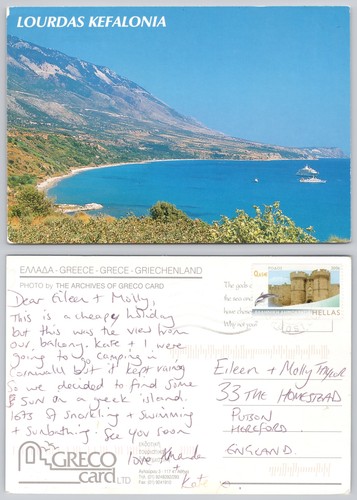 LOURDAS KEFALONIA
ΕΛΛΑΔΑ - GREECE - GRECE - GRIECHENLAND
PHOTO by THE ARCHIVES OF GRECO CARD
Dear Eileen + Molly,
This is a cheapy holiday
but this was the view from
our balcony. Kate + I were
going to go camping in
Cornwall but it kept raining
So we decided to find some
sun on a greek island.
lots of snorkling + swimming
+ sunbathing. See you soon
love
+
Kate
GRECO
card LTD
The gods
the sea
hour
Why not
HELLAS
Eileen + Molly
33 THE HOMESTEAD
PUTSON
HEREFORD
ENGLAND.